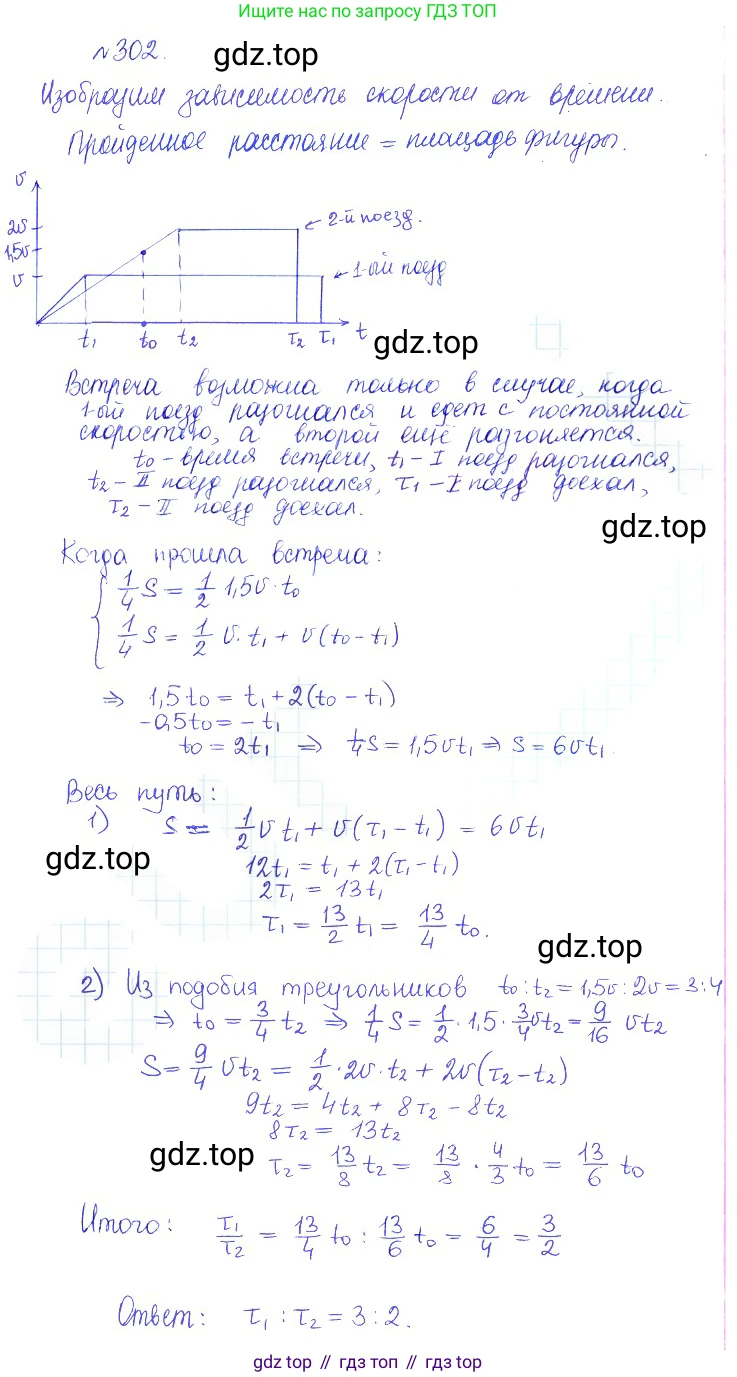 Ищите нас по запросу ГДЗ ТОП
№302.
gdz.top
Изобразим зависимость скорости от времени.
Пройденное расстояние = площадь фигуры.
υ
2υ
1,5υ
υ
← 2-й поезд.
← 1-ый поезд
t₁ t₀ t₂ τ₂ τ₁ t
gdz.top
Встреча возможна только в случае, когда
1-ый поезд разогнался и едет с постоянной
скоростью, а второй ещё разгоняется.
t₀ - время встречи, t₁ - I поезд разогнался,
t₂ - II поезд разогнался, τ₁ - I поезд доехал,
τ₂ - II поезд доехал.
gdz.top
Когда прошла встреча:
{ 1/4 S = 1/2 1,5υ · t₀
1/4 S = 1/2 υ · t₁ + υ(t₀ - t₁)
⇒ 1,5t₀ = t₁ + 2(t₀ - t₁)
-0,5t₀ = -t₁
t₀ = 2t₁ ⇒ 1/4 S = 1,5υt₁ ⇒ S = 6υt₁
Весь путь:
1) S = 1/2 υt₁ + υ(τ₁ - t₁) = 6υt₁
gdz.top
12t₁ = t₁ + 2(τ₁ - t₁)
2τ₁ = 13t₁
τ₁ = 13/2 t₁ = 13/4 t₀.
gdz.top
2) Из подобия треугольников t₀ : t₂ = 1,5υ : 2υ = 3:4
⇒ t₀ = 3/4 t₂ ⇒ 1/4 S = 1/2 · 1,5 · 3/4 υt₂ = 9/16 υt₂
S = 9/4 υt₂ = 1/2 · 2υ · t₂ + 2υ(τ₂ - t₂)
9t₂ = 4t₂ + 8τ₂ - 8t₂
8τ₂ = 13t₂
gdz.top
τ₂ = 13/8 t₂ = 13/8 · 4/3 t₀ = 13/6 t₀
Итого: τ₁/τ₂ = 13/4 t₀ : 13/6 t₀ = 6/4 = 3/2
Ответ: τ₁ : τ₂ = 3 : 2.
gdz top // гдз топ // gdz top